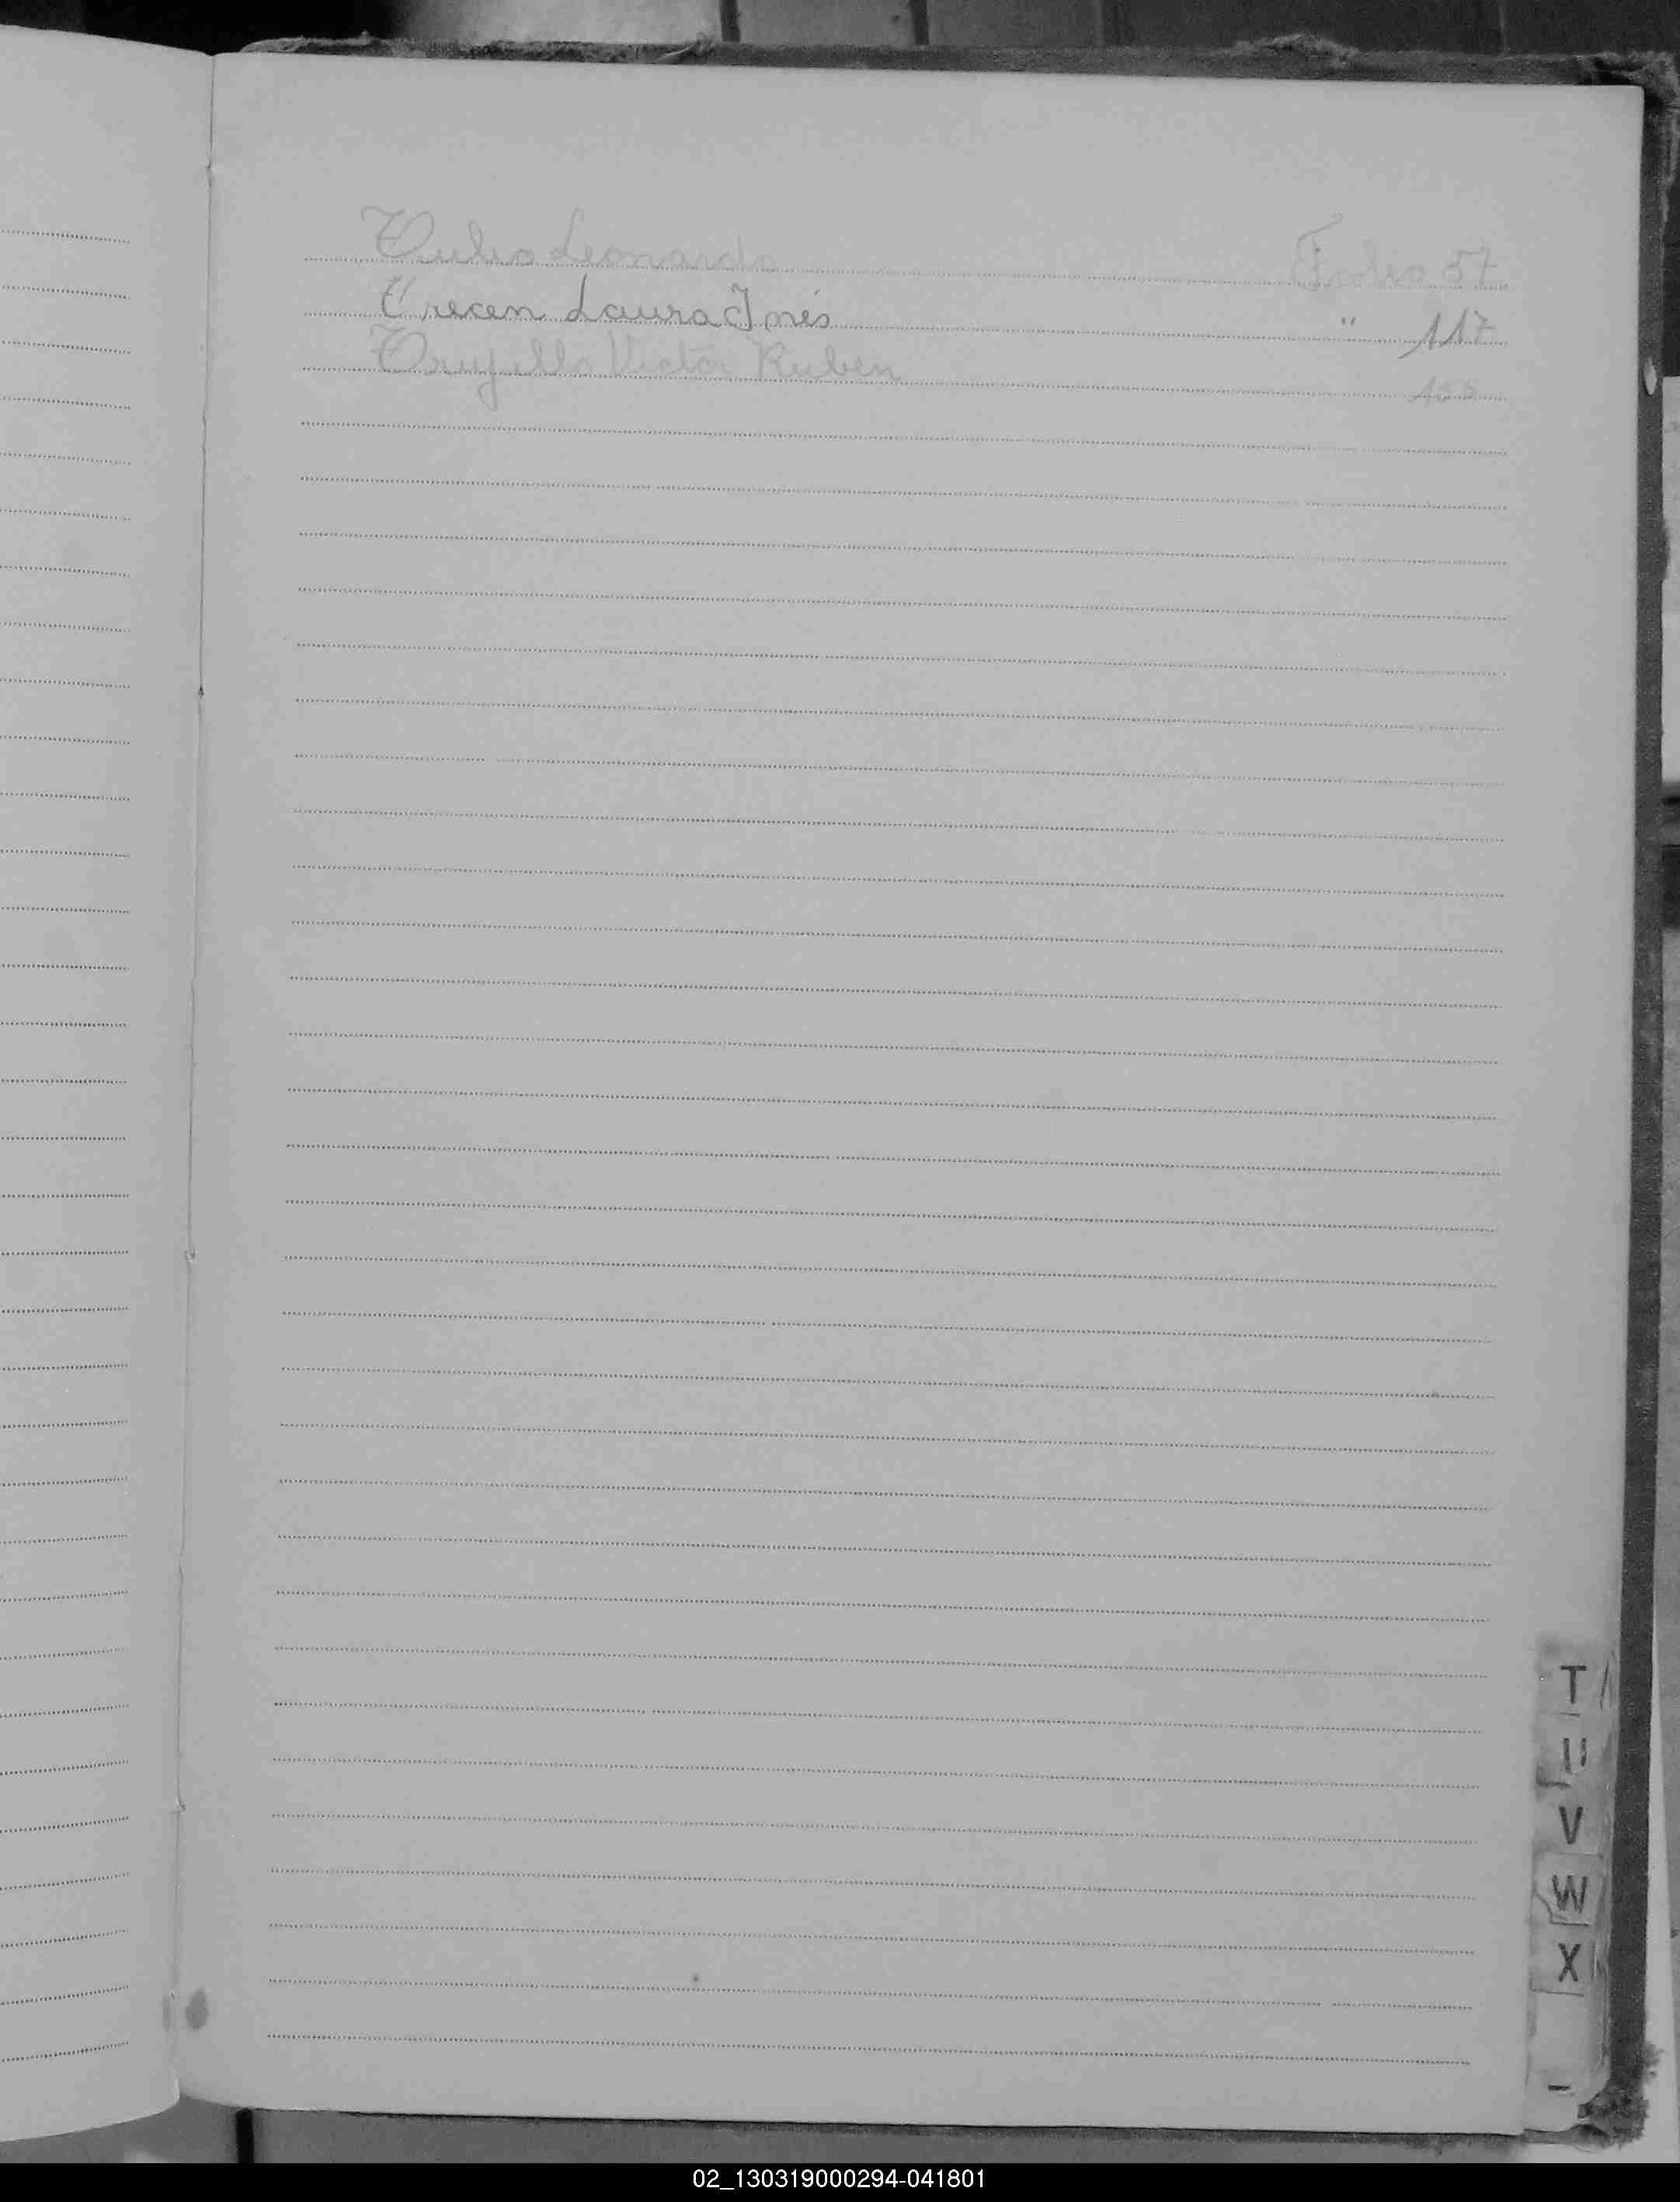 Tulio Leonardo Folio 57
Trecen Laura Inés " 117
Trujillo Victor Ruben
T
U
V
W
X
02_130319000294-041801